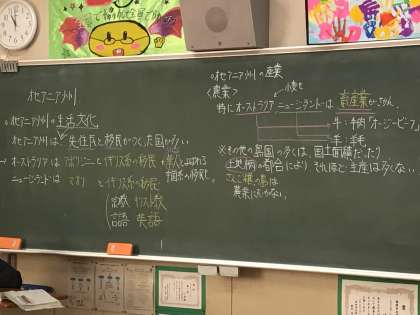 オセアニア州
。オセアニア州の生活文化
オセアニア州は先住民と移民がつくった国が多い
オーストラリアはアボリジニーとイギリス系の移民
ニュージーランドはマオリとイギリス系の移民
宗教 キリスト教
言語 英語
。オセアニア州の産業
〈農業〉
小麦も
特にオーストラリア ニュージーランドは畜産業がさかん
牛:牛肉「オージービーフ」
羊:羊毛
※その他の島国の多くは、国土面積だったり
土地柄の都合により、それほど生産は多くない。
さんご礁の島は
農業にむかない。